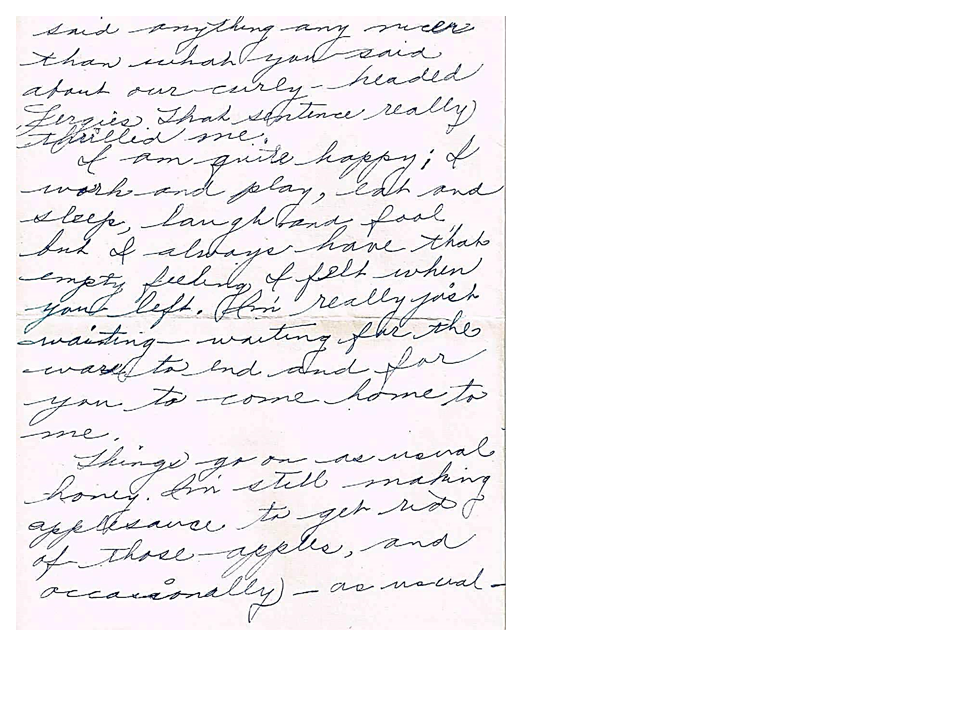 said anything any nicer
than what you said
about our curly-headed
Fergies. That sentence really
thrilled me.
I am quite happy; I
work and play, eat and
sleep, laugh and fool,
but I always have that
empty feeling I felt when
you left. I'm really just
waiting - waiting for the
war to end and for
you to come home to
me.
Things go on as usual
honey. I'm still making
applesauce to get rid
of those apples, and
occasionally - as usual -